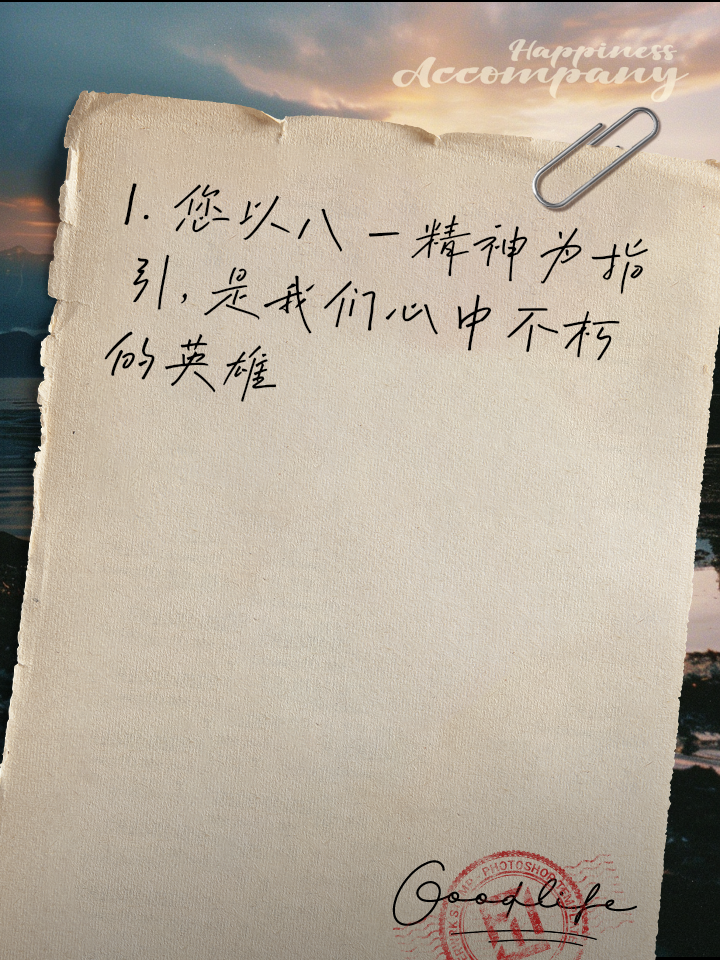 Happiness
Accompany
1. 您以八一精神为指
引，是我们心中不朽
的英雄
PHOTOSHOP
Goodlife